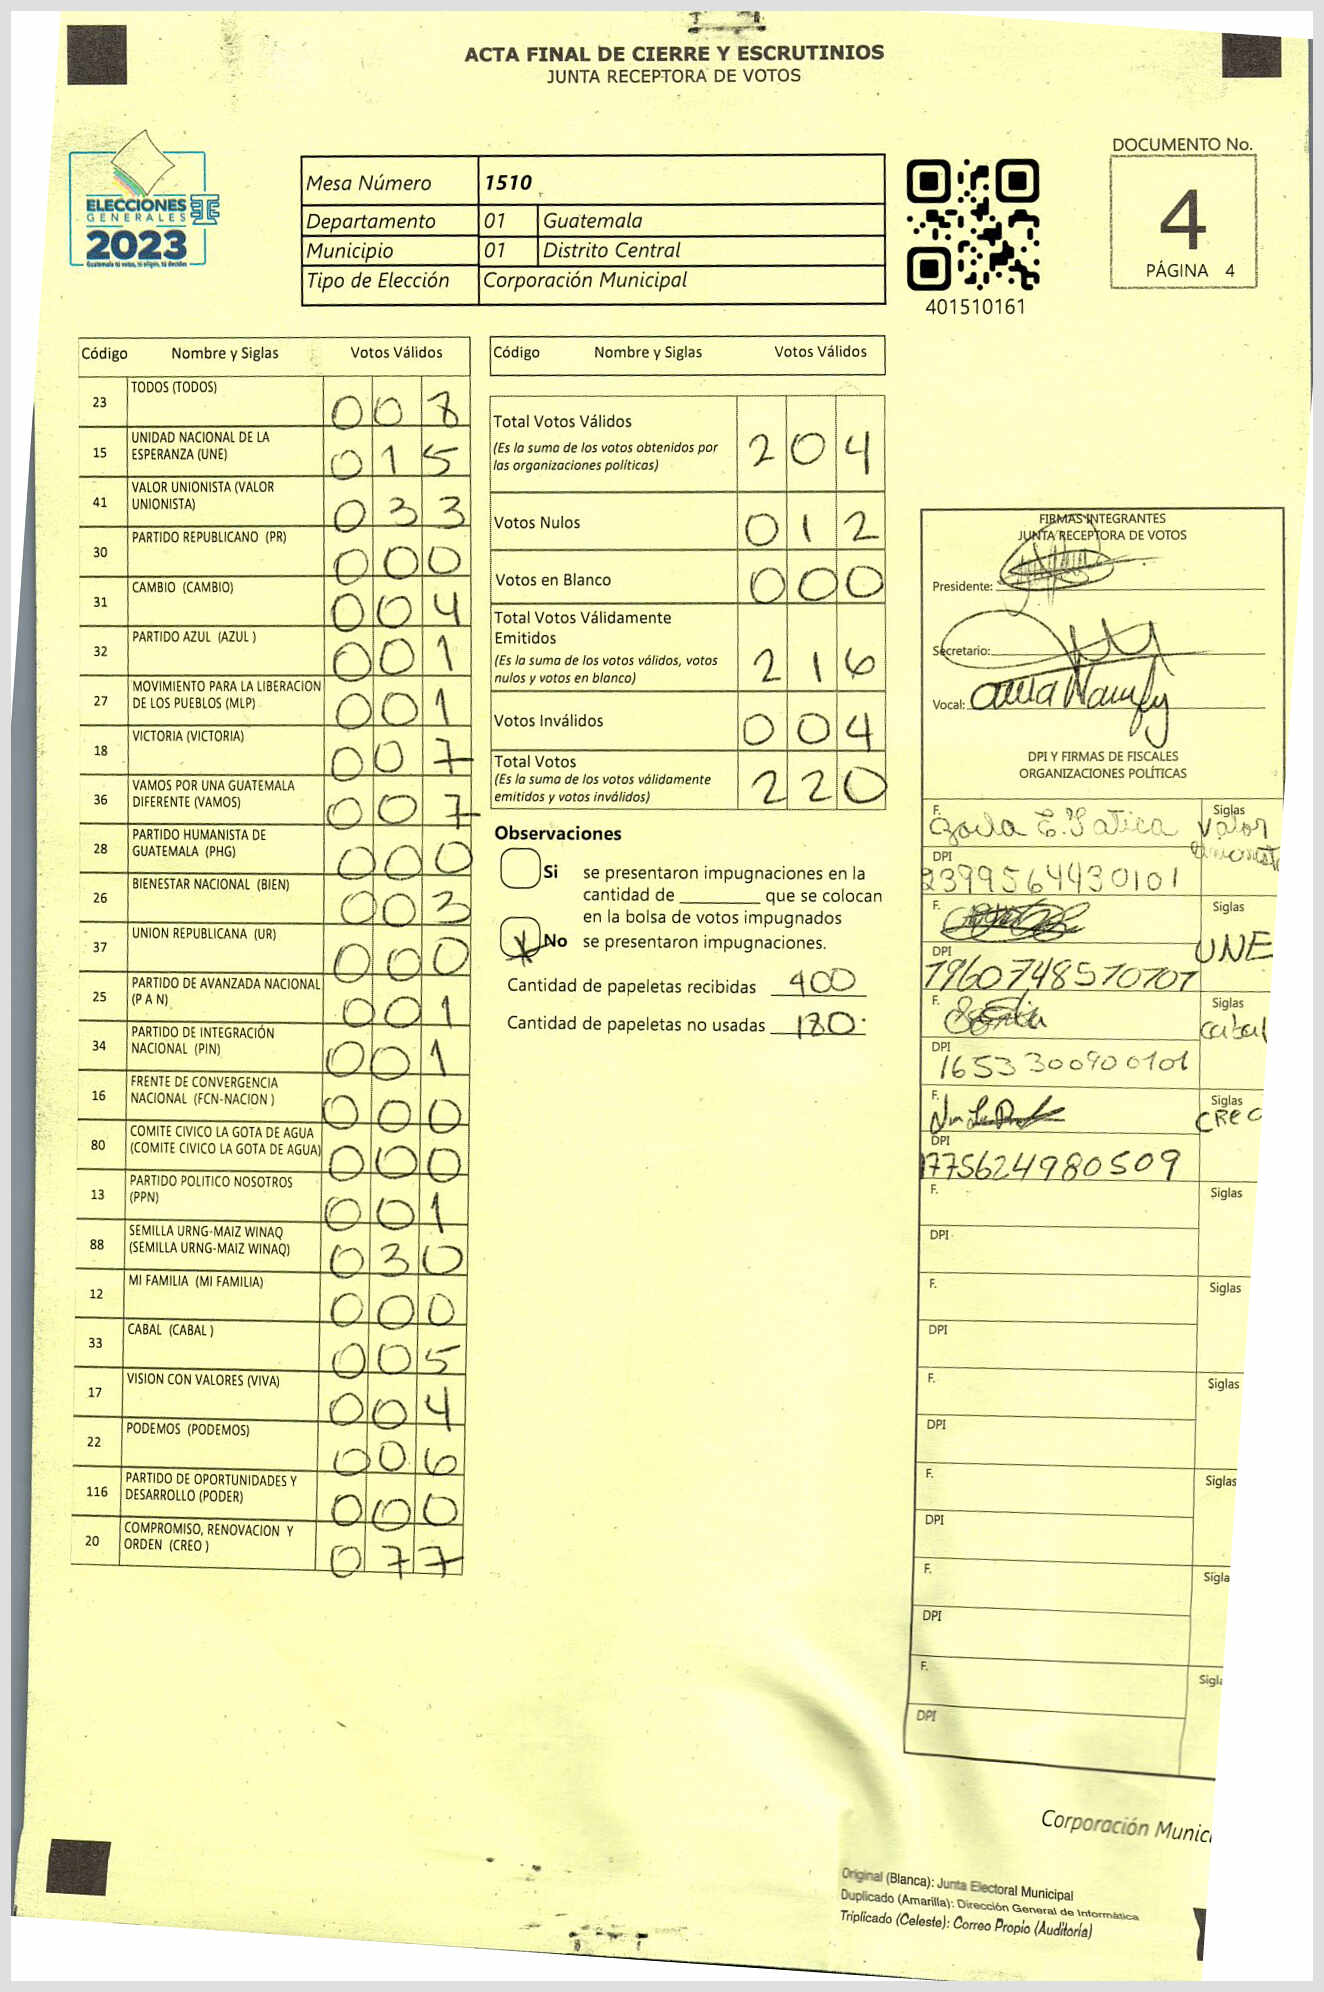 ACTA FINAL DE CIERRE Y ESCRUTINIOS
JUNTA RECEPTORA DE VOTOS
ELECCIONES
GENERALES
2023
Guatemala tú votas, tú eliges, tú decides
Mesa Número 1510
Departamento 01 Guatemala
Municipio 01 Distrito Central
Tipo de Elección Corporación Municipal
401510161
DOCUMENTO No.
4
PÁGINA 4
Código Nombre y Siglas Votos Válidos
23 TODOS (TODOS) 008
15 UNIDAD NACIONAL DE LA ESPERANZA (UNE) 015
41 VALOR UNIONISTA (VALOR UNIONISTA) 033
30 PARTIDO REPUBLICANO (PR) 000
31 CAMBIO (CAMBIO) 004
32 PARTIDO AZUL (AZUL ) 001
27 MOVIMIENTO PARA LA LIBERACION DE LOS PUEBLOS (MLP) 001
18 VICTORIA (VICTORIA) 007
36 VAMOS POR UNA GUATEMALA DIFERENTE (VAMOS) 007
28 PARTIDO HUMANISTA DE GUATEMALA (PHG) 000
26 BIENESTAR NACIONAL (BIEN) 003
37 UNION REPUBLICANA (UR) 000
25 PARTIDO DE AVANZADA NACIONAL (P A N) 001
34 PARTIDO DE INTEGRACIÓN NACIONAL (PIN) 001
16 FRENTE DE CONVERGENCIA NACIONAL (FCN-NACION ) 000
80 COMITE CIVICO LA GOTA DE AGUA (COMITE CIVICO LA GOTA DE AGUA) 000
13 PARTIDO POLITICO NOSOTROS (PPN) 001
88 SEMILLA URNG-MAIZ WINAQ (SEMILLA URNG-MAIZ WINAQ) 030
12 MI FAMILIA (MI FAMILIA) 000
33 CABAL (CABAL ) 005
17 VISION CON VALORES (VIVA) 004
22 PODEMOS (PODEMOS) 006
116 PARTIDO DE OPORTUNIDADES Y DESARROLLO (PODER) 000
20 COMPROMISO, RENOVACION Y ORDEN (CREO ) 077
Código Nombre y Siglas Votos Válidos
Total Votos Válidos 204
(Es la suma de los votos obtenidos por
las organizaciones políticas)
Votos Nulos 012
Votos en Blanco 000
Total Votos Válidamente
Emitidos 216
(Es la suma de los votos válidos, votos
nulos y votos en blanco)
Votos Inválidos 004
Total Votos 220
(Es la suma de los votos válidamente
emitidos y votos inválidos)
Observaciones
Si se presentaron impugnaciones en la
cantidad de ________ que se colocan
en la bolsa de votos impugnados
X No se presentaron impugnaciones.
Cantidad de papeletas recibidas 400
Cantidad de papeletas no usadas 180
FIRMAS INTEGRANTES
JUNTA RECEPTORA DE VOTOS
Presidente:
Secretario:
Vocal:
DPI Y FIRMAS DE FISCALES
ORGANIZACIONES POLÍTICAS
F. Siglas Valor
DPI 2399564430101
F. Siglas UNE
DPI 1960748570101
F. Siglas Cabal
DPI 1653300900101
F. Siglas CREO
DPI 1775624980509
F. Siglas
DPI
F. Siglas
DPI
F. Siglas
DPI
F. Siglas
DPI
F. Sigla
DPI
F. Sigla
DPI
Corporación Munic
Original (Blanca): Junta Electoral Municipal
Duplicado (Amarilla): Dirección General de Informática
Triplicado (Celeste): Correo Propio (Auditoría)